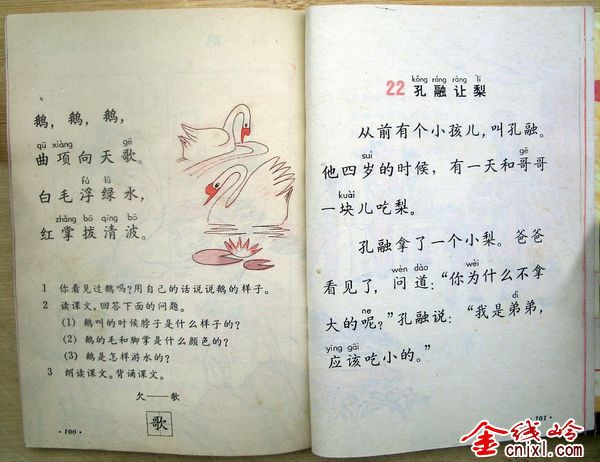 鹅，鹅，鹅，
qū xiàng gē
曲项向天歌。
fú lǜ
白毛浮绿水，
zhǎng bō qīng bō
红掌拨清波。
1 你看见过鹅吗？用自己的话说说鹅的样子。
2 读课文，回答下面的问题。
(1) 鹅叫的时候脖子是什么样子的？
(2) 鹅的毛和脚掌是什么颜色的？
(3) 鹅是怎样游水的？
3 朗读课文。背诵课文。
欠——歌
歌
·100·
kǒng róng ràng lí
22 孔融让梨
从前有个小孩儿，叫孔融。
suì gē
他四岁的时候，有一天和哥哥
kuài
一块儿吃梨。
孔融拿了一个小梨。爸爸
wèn dào wèi
看见了，问道：“你为什么不拿
ne dì
大的呢？”孔融说：“我是弟弟，
yīng gāi
应该吃小的。”
·101·
金线岭
cnjxl.com